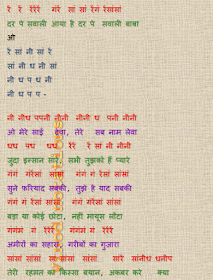 रे रे रेरेरे गंरे सां सां रेंगं रेसांसां
दर पे सवाली आया है दर पे सवाली बाबा
ओ
रे सां नी सां रे
सां नी ध नी सां
नी ध प ध नी
नी ध प प -
नीनी धध पपनी नीनी नीनी ध पनी नीनी
ओ मेरे साईं देवा, तेरे सब नाम लेवा
धध पध धध, रेरे रें सां नी नीनी
जुदा इन्सान सारे, सभी तुझको हैं प्यारे
गंगं गंरेसां सांसां गंगं गं गंरेसां सांसां
सुने फरियाद सबकी, तुझे है याद सबकी
गंगं गं रेसां सांसां गंगं गंरेसां सांसां
बड़ा या कोई छोटा, नहीं मायूस लौटा
गंगंमं गं गंरेरें गंगंमं गं गंरेरें
अमीरों का सहारा, गरीबों का गुजारा
सांसां सांसां सां सांसां सांसां सारे सांनीध धनीप
तेरी रहमत का किस्सा बयान, अकबर करे क्या